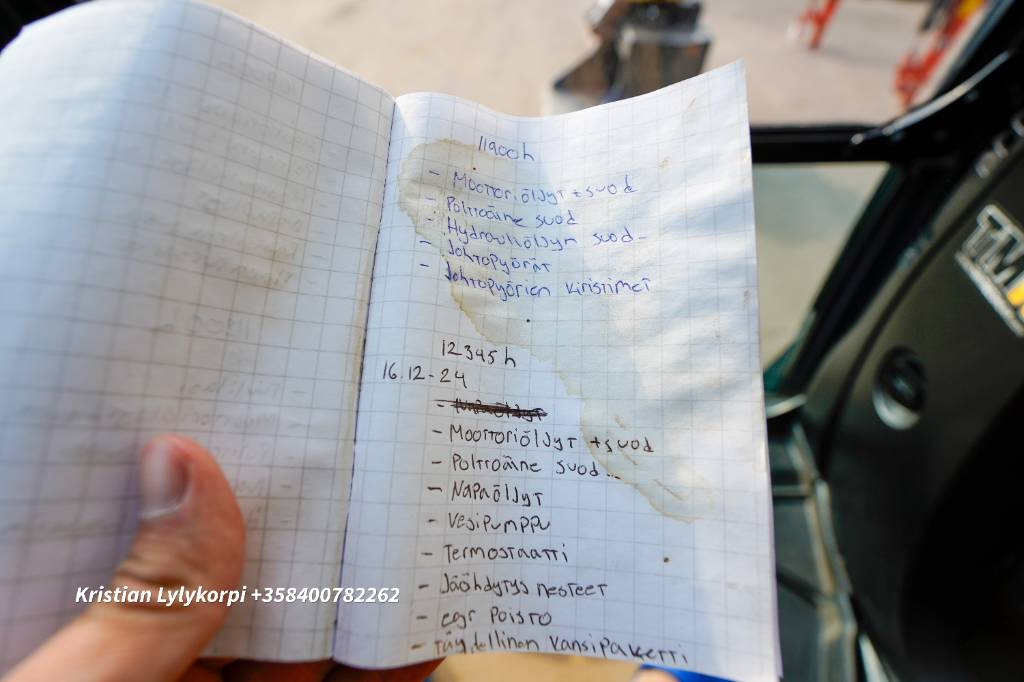 11900h
- Moottoriöljyt + suod
- Polttoaine suod
- Hydrauliöljyn suod-
- Johtopyörät
- Johtopyörien kiristimet
12345h
16.12-24
- Moottoriöljyt + suod
- Polttoaine suod..
- Napaöljyt
- Vesipumppu
- Termostaatti
- Jäähdytys nesteet
- egr Poisto
- Täydellinen kansipaketti
Kristian Lylykorpi +358400782262
TMK